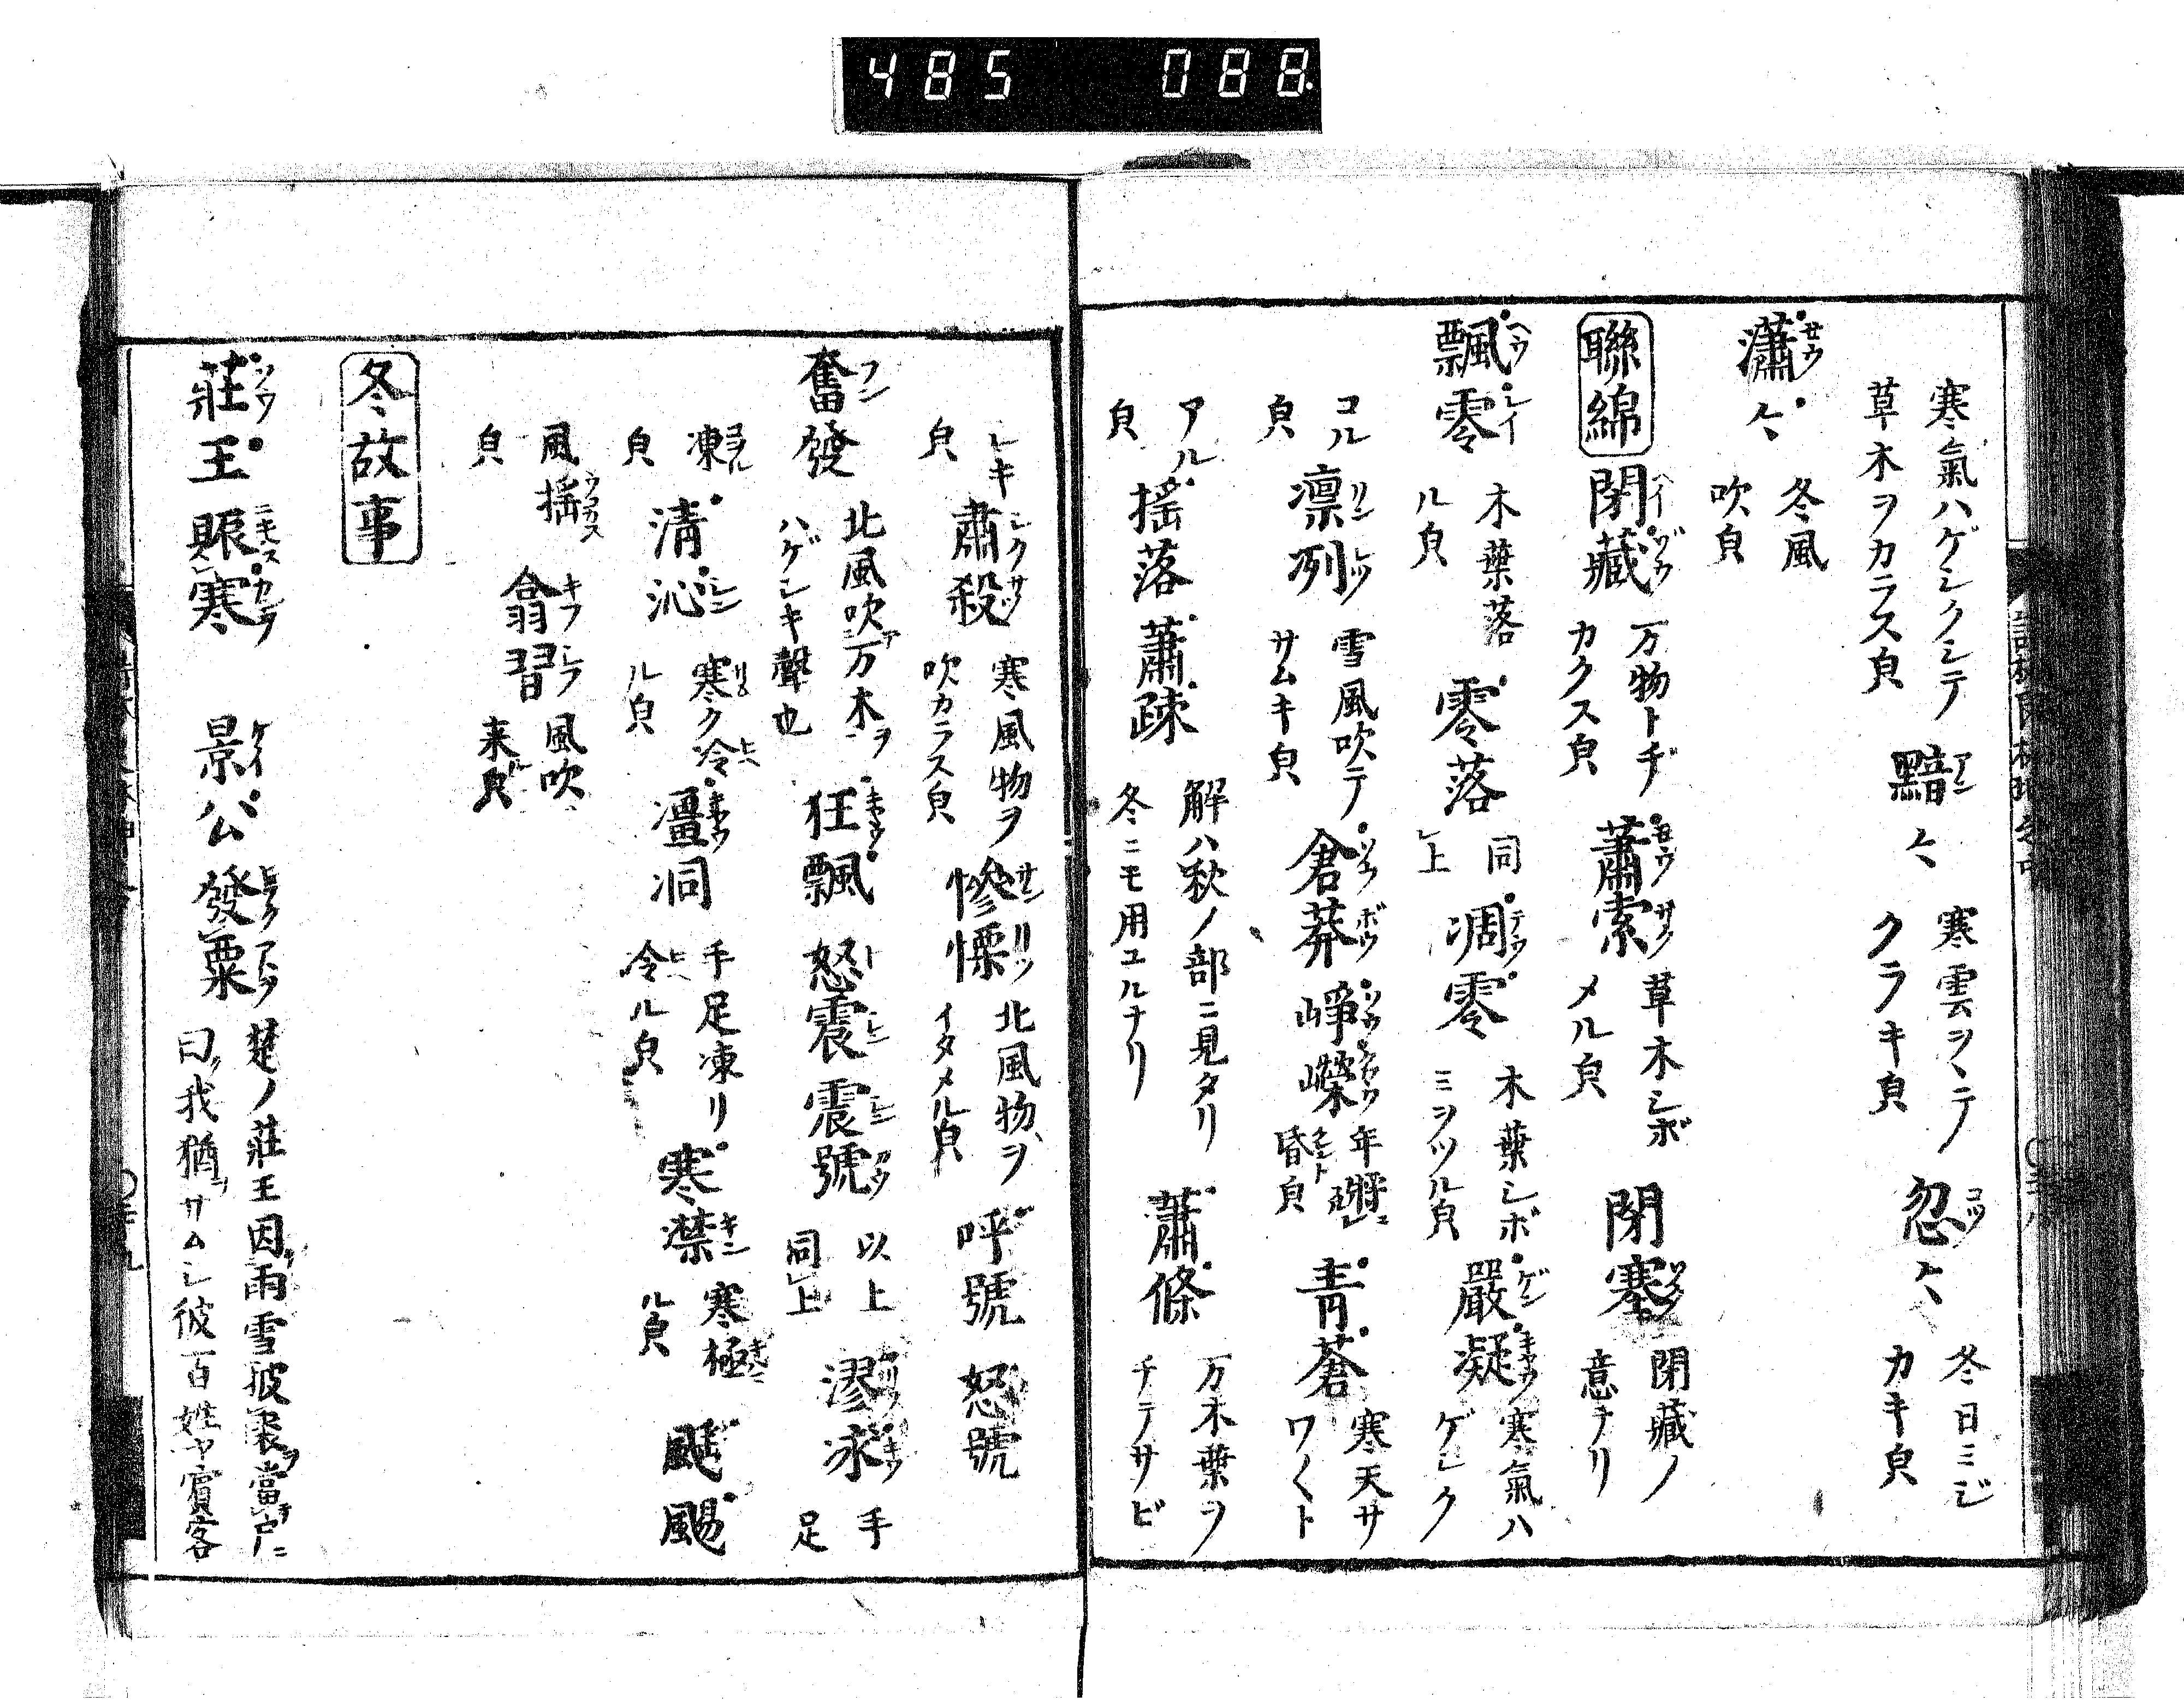 485 088
寒氣ハゲシクシテ
草木ヲカラス皃
黯〻
寒雲ヲヽテ
クラキ皃
忽〻
冬日ミジ
カキ皃
瀟〻
冬風
吹皃
聯綿
閉藏
万物トヂ
カクス皃
蕭索
草木シボ
メル皃
閉塞
閉藏ノ
意ナリ
飄零
木葉落
ル皃
零落
同
上
凋零
木葉シボ
ミヲツル皃
嚴凝
寒氣ハ
ゲシク
コル
皃
凛冽
雪風吹テ
サムキ皃
倉莽
崢嶸
年將ニ
昏皃
青蒼
寒天サ
ワ〱ト
アル
皃
揺落
蕭疎
解ハ秋ノ部ニ見タリ
冬ニモ用ユルナリ
蕭條
万木葉ヲ
チテサビ
シキ
皃
肅殺
寒風物ヲ
吹カラス皃
慘慄
北風物ヲ
イタメル皃
呼號
怒號
奮發
北風吹万木ヲ
ハゲシキ聲也
狂飄
怒震
震號
以上
同上
漻泳
手
足
凍
皃
清沁
寒ク冷
ル皃
凍リ
手足凍リ
冷ル皃
寒凚
寒極
ル皃
颼颺
風揺
皃
翕習
風吹
来皃
冬故事
莊王賑寒
景公發粟
楚ノ莊王因雨雪披裘當戸ニ
曰我猶サムシ彼百姓ヤ賓客